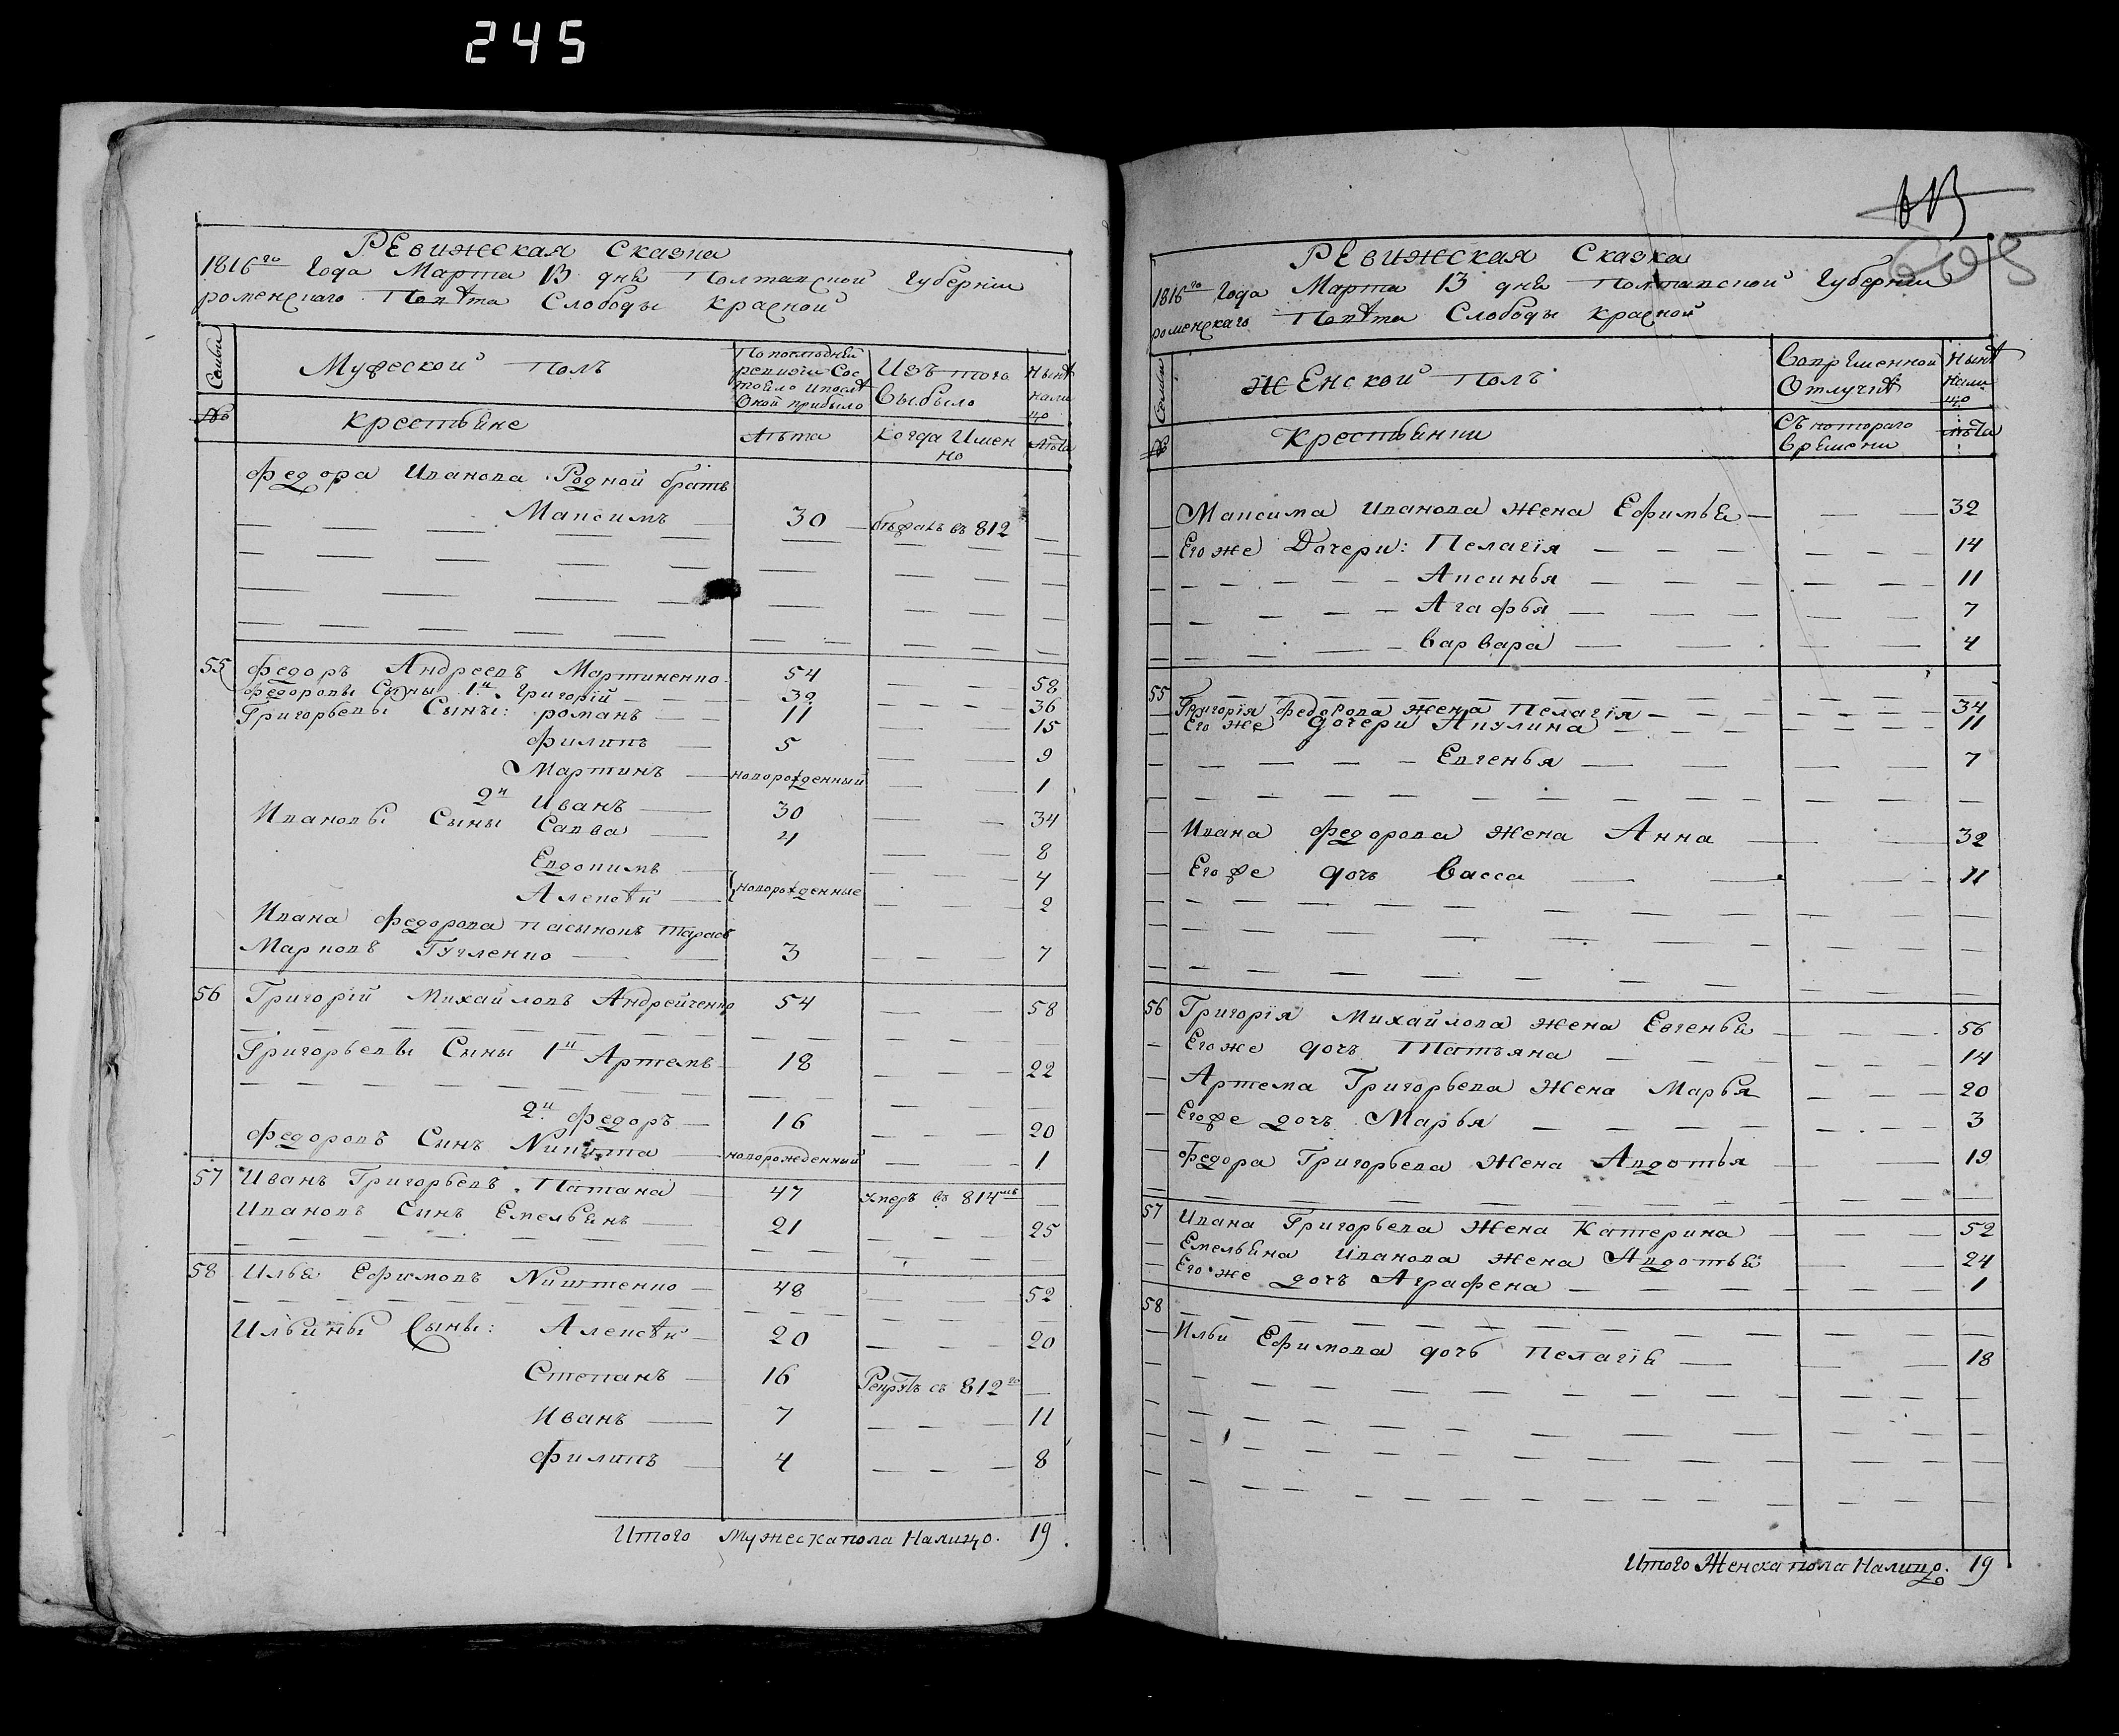 245
Ревижская Сказка
1816го Года Марта 13 дня Полтавской Губернии
роменскаго Повѣта Слободы красной
Семьи
Мужеской полъ
По последней ревизіи Состояло ипослѣ Оной прибыло
Изъ того Выбыло
Нынѣ налицо
№
крестьяне
Лѣта
когда Именно
Лѣта
федора Иванова Родной братъ
Максимъ 30 бѣжалъ въ 812
55 федоръ Андреевъ Мартиненко 54 58
федоровы Сыны 1й Григорій 32 36
Григорьевы Сыны: романъ 11 15
филипъ 5 9
Мартинъ новорожденный 1
2й Иванъ 30 34
Ивановы Сыны Савва 4 8
Евдокимъ 4
Алексѣй новорожденные 2
Ивана федорова пасынокъ Тарасъ
Марковъ 3 7
56 Григорій Михайловъ Андрейченко 54 58
Григорьевы Сыны 1й Артемъ 18 22
2й федоръ 16 20
федоровъ Сынъ Никита новорожденный 1
57 Иванъ Григорьевъ Латана 47 умеръ въ 814мъ
Ивановъ Сынъ Емельянъ 21 25
58 Илья Ефимовъ Никитенко 48 52
Ильины Сыны: Алексѣй 20 20
Степанъ 16 Рекрутъ съ 812го
Иванъ 7 11
филипъ 4 8
Итого Мужеска пола Налицо. 19
13
608
Ревижская Сказка
1816го Года Марта 13 дня Полтавской Губерніи
роменскаго Повѣта Слободы красной
Семьи
Женской полъ
Вовременной Отлучкѣ
Нынѣ налицо
№
Крестьянки
Съ котораго времени
лѣта
Максима Иванова жена Ефимья 32
Его же Дочери: Пелагія 14
Аксинья 11
Агафья 7
варвара 4
55 Григорія федорова жена Пелагія 34
Его же дочери Акулина 11
Евгенья 7
Ивана федорова жена Анна 32
Его же дочь Васса 11
56 Григорія Михайлова жена Евгенья 56
Его же дочь Татьяна 14
Артема Григорьева Жена Марья 20
Его же дочь Марья 3
федора Григорьева Жена Авдотья 19
57 Ивана Григорьева Жена Катерина 52
Емельяна Иванова жена Авдотья 24
Его же дочь Аграфена 1
58
Ильи Ефимова дочь Пелагія 18
Итого Женска пола Налицо. 19